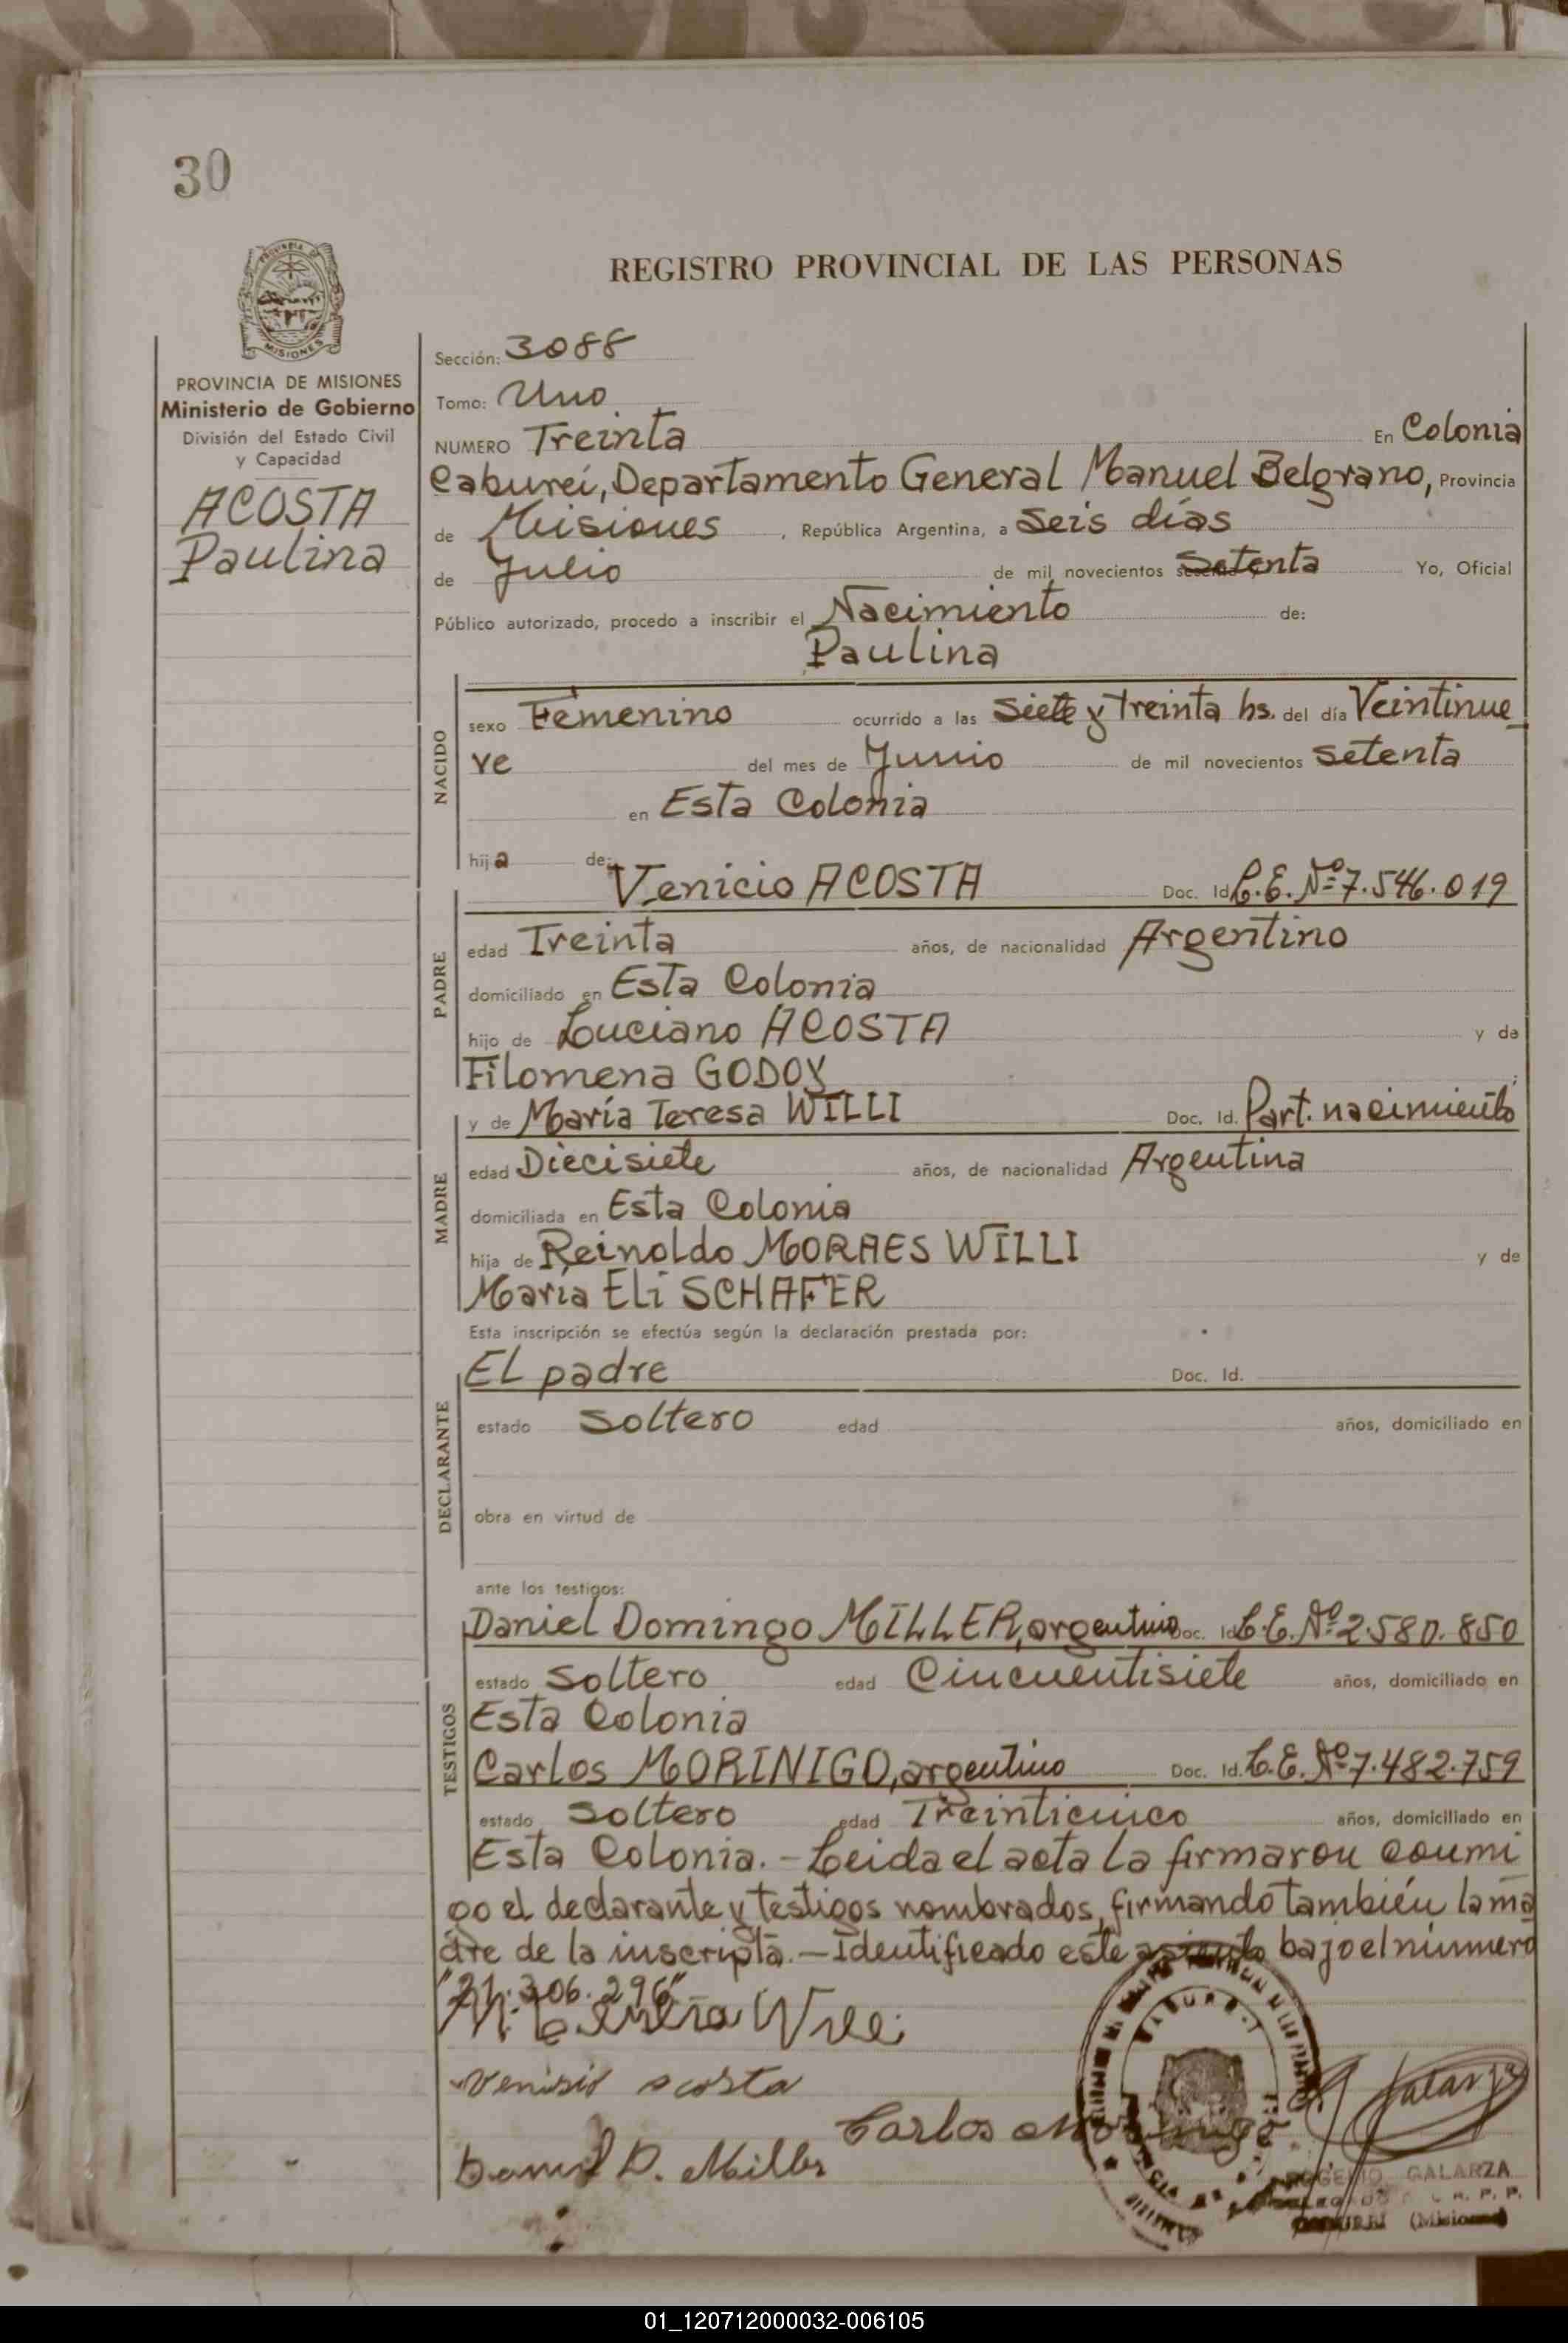 30
REGISTRO PROVINCIAL DE LAS PERSONAS
MISIONES
PROVINCIA DE MISIONES
Ministerio de Gobierno
División del Estado Civil
y Capacidad
ACOSTA
Paulina
Sección: 3088
Tomo: Uno
NUMERO Treinta En Colonia
Caburei, Departamento General Manuel Belgrano, Provincia
de Misiones, República Argentina, a Seis días
de Julio de mil novecientos Setenta Yo, Oficial
Público autorizado, procedo a inscribir el Nacimiento de:
Paulina
NACIDO
sexo Femenino ocurrido a las Siete y Treinta hs. del día Veintinue
ve del mes de Junio de mil novecientos Setenta
en Esta Colonia
hija de:
PADRE
Venicio ACOSTA Doc. Id. L.E. Nº 7.546.019
edad Treinta años, de nacionalidad Argentino
domiciliado en Esta Colonia
hijo de Luciano ACOSTA y de
Filomena GODOY
MADRE
y de María Teresa WILLI Doc. Id. Part. nacimiento
edad Diecisiete años, de nacionalidad Argentina
domiciliada en Esta Colonia
hija de Reinoldo MORAES WILLI y de
María Eli SCHAFER
Esta inscripción se efectúa según la declaración prestada por:
DECLARANTE
EL padre Doc. Id.
estado Soltero edad años, domiciliado en
obra en virtud de
ante los testigos:
TESTIGOS
Daniel Domingo MILLER, argentino Doc. Id. L.E. Nº 2.580.850
estado Soltero edad Cincuentisiete años, domiciliado en
Esta Colonia
Carlos MORINIGO, argentino Doc. Id. L.E. Nº 7.482.759
estado Soltero edad Treinticinco años, domiciliado en
Esta Colonia.- Leida el acta la firmaron conmi
go el declarante y testigos nombrados, firmando también la ma
dre de la inscripta.- Identificado este asiento bajo el número
"21.306.296"
Willi
Venisio acosta
Carlos Morinigo
Galarza
Daniel D. Miller
ROGELIO GALARZA
R. P. P.
CABUREI (Misiones)
01_120712000032-006105